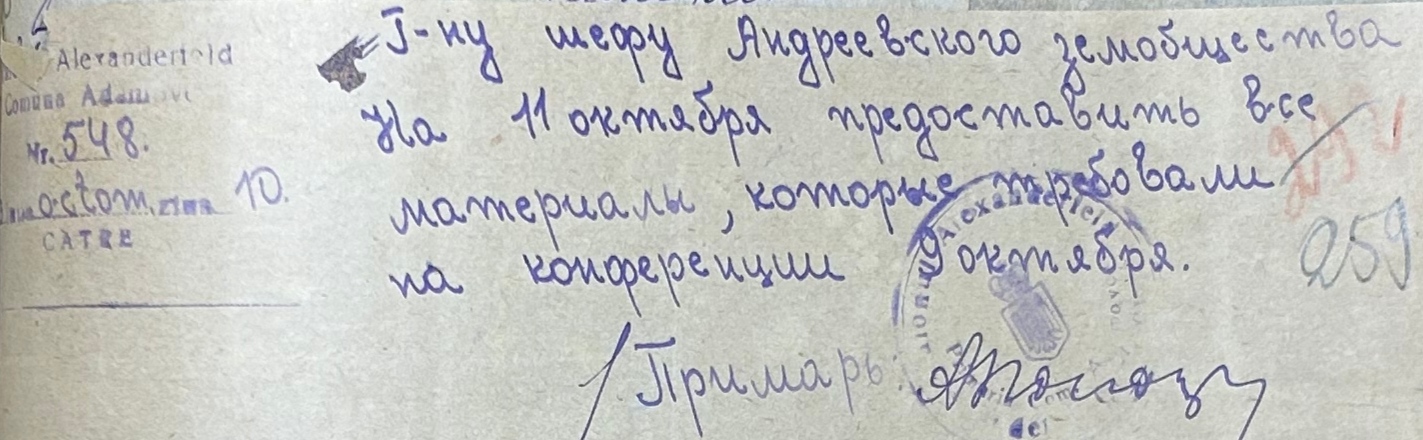 Alexanderfeld
Comuna
Nr. 548.
octom. 10.
CATRE
Г-ну шефу Андреевского земобщества
На 11 октября предоставить все
материалы, которые требовали
на конференции 9 октября.
Примарь:
Alexanderfeld
259